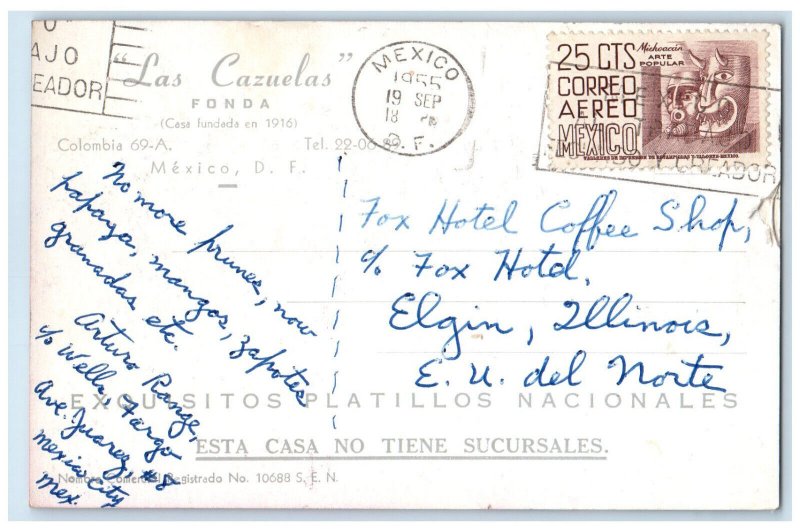 O
AJO
EADOR
"Las Cazuelas"
FONDA
(Casa fundada en 1916)
Colombia 69-A.   Tel. 22-06-89
México, D. F.
MEXICO
1955
19 SEP
18
D. F.
25 CTS
CORREO
AEREO
MEXICO
Michoacán
ARTE
POPULAR
CREADOR
No more prunes, now
papaya, mangos, zapotes
granadas etc.
Arturo Range,
c/o Wells Fargo
Ave. Juarez, #8
Mexico City
Mex.
Fox Hotel Coffee Shop,
c/o Fox Hotel,
Elgin, Illinois,
E. U. del Norte
EXQUISITOS PLATILLOS NACIONALES
ESTA CASA NO TIENE SUCURSALES.
Nombre Comercial Registrado No. 10688 S. E. N.